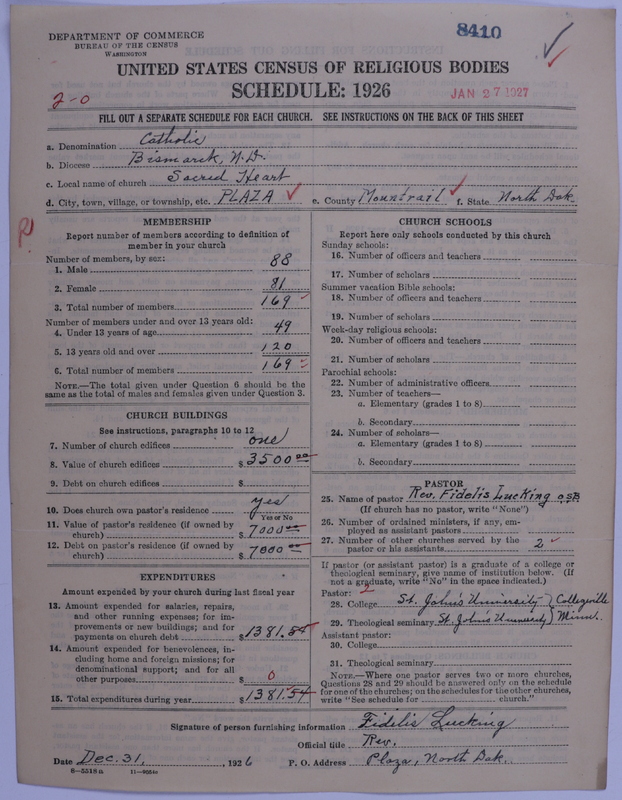 DEPARTMENT OF COMMERCE
BUREAU OF THE CENSUS
WASHINGTON
8410
UNITED STATES CENSUS OF RELIGIOUS BODIES
SCHEDULE: 1926
2-0
JAN 27 1927
FILL OUT A SEPARATE SCHEDULE FOR EACH CHURCH. SEE INSTRUCTIONS ON THE BACK OF THIS SHEET
a. Denomination Catholic
b. Diocese Bismarck, N.D.
c. Local name of church Sacred Heart
d. City, town, village, or township, etc. PLAZA e. County Mountrail f. State North Dak.
MEMBERSHIP
Report number of members according to definition of
member in your church
Number of members, by sex:
1. Male 88
2. Female 81
3. Total number of members 169
Number of members under and over 13 years old:
4. Under 13 years of age 49
5. 13 years old and over 120
6. Total number of members 169
NOTE.—The total given under Question 6 should be the
same as the total of males and females given under Question 3.
CHURCH BUILDINGS
See instructions, paragraphs 10 to 12
7. Number of church edifices one
8. Value of church edifices $ 3500 00
9. Debt on church edifices $
10. Does church own pastor's residence yes
Yes or No
11. Value of pastor's residence (if owned by
church) $ 7000 00
12. Debt on pastor's residence (if owned by
church) $ 7000 00
EXPENDITURES
Amount expended by your church during last fiscal year
13. Amount expended for salaries, repairs,
and other running expenses; for im-
provements or new buildings; and for
payments on church debt $ 1381.54
14. Amount expended for benevolences, in-
cluding home and foreign missions; for
denominational support; and for all
other purposes $ 0
15. Total expenditures during year $ 1381.54
CHURCH SCHOOLS
Report here only schools conducted by this church
Sunday schools:
16. Number of officers and teachers
17. Number of scholars
Summer vacation Bible schools:
18. Number of officers and teachers
19. Number of scholars
Week-day religious schools:
20. Number of officers and teachers
21. Number of scholars
Parochial schools:
22. Number of administrative officers
23. Number of teachers—
a. Elementary (grades 1 to 8)
b. Secondary
24. Number of scholars—
a. Elementary (grades 1 to 8)
b. Secondary
PASTOR
25. Name of pastor Rev. Fidelis Lucking O.S.B.
(If church has no pastor, write "None")
26. Number of ordained ministers, if any, em-
ployed as assistant pastors
27. Number of other churches served by the
pastor or his assistants 2
If pastor (or assistant pastor) is a graduate of a college or
theological seminary, give name of institution below. (If
not a graduate, write "No" in the space indicated.)
Pastor: 2
28. College St. John's University) Collegeville
29. Theological seminary St. John's University) Minn.
Assistant pastor:
30. College
31. Theological seminary
NOTE.—Where one pastor serves two or more churches,
Questions 28 and 29 should be answered only on the schedule
for one of the churches; on the schedules for the other churches,
write "See schedule for church."
Signature of person furnishing information Fidelis Lucking
Official title Rev.
Date Dec. 31, 1926 P. O. Address Plaza, North Dak.